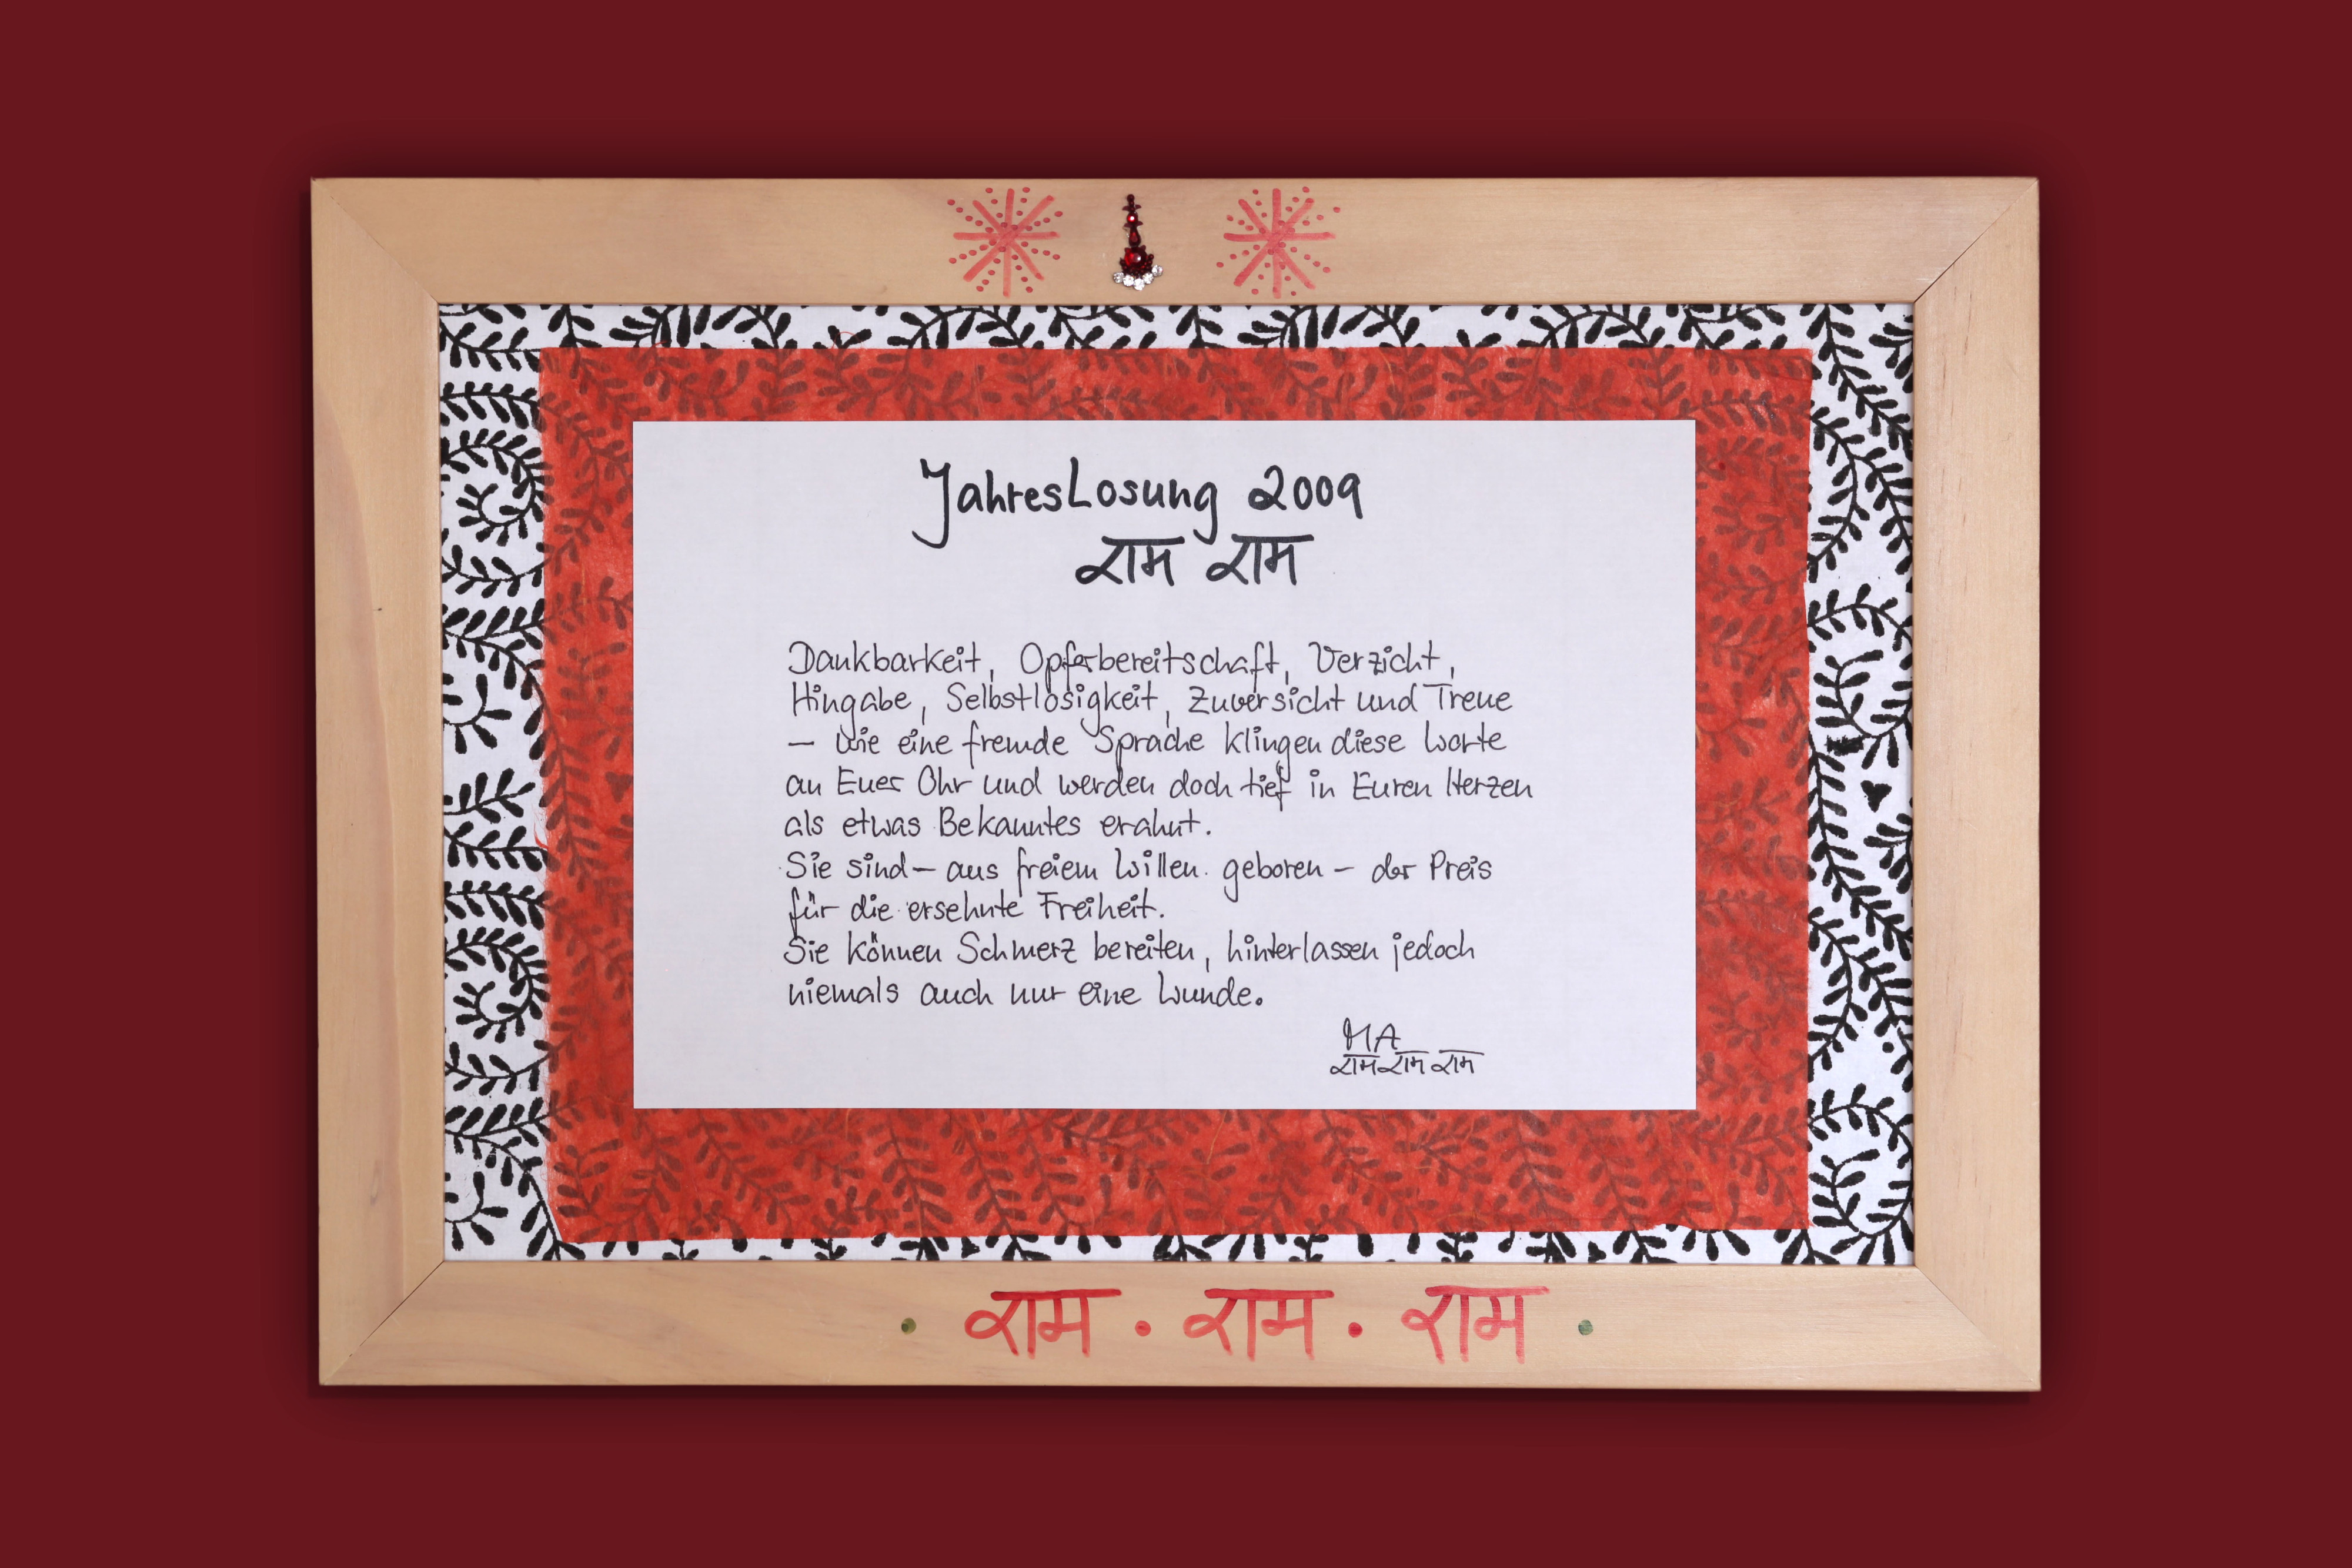 JahresLosung 2009
राम राम
Dankbarkeit, Opferbereitschaft, Verzicht,
Hingabe, Selbstlosigkeit, Zuversicht und Treue
– wie eine fremde Sprache klingen diese Worte
an Euer Ohr und werden doch tief in Euren Herzen
als etwas Bekanntes erahnt.
Sie sind – aus freiem Willen geboren – der Preis
für die ersehnte Freiheit.
Sie können Schmerz bereiten, hinterlassen jedoch
niemals auch nur eine Wunde.
MA
राम राम राम
• राम • राम • राम •